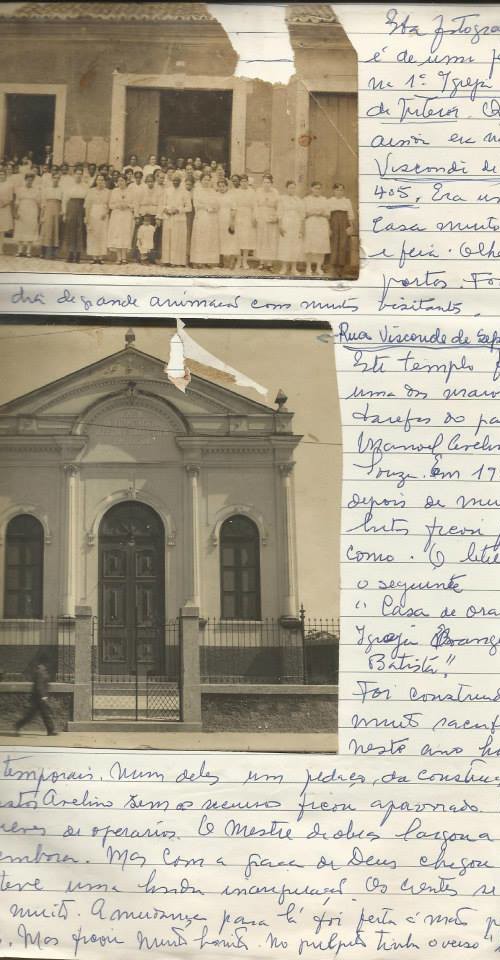 Esta fotogra
é de uma f
na 1ª Igreja
de Niteroi.
ainda era n
Visconde de
405. Era u
Casa muito
e feia. Olh
portas. Fo
dia de grande animação com muitos visitantes.
Rua Visconde de Sep
Este templo f
uma das maio
tarefas do pa
Manoel Aveli
Souza. Em 19
depois de mu
lutas ficou
como. O letre
o seguinte
"Casa de ora
Igreja Evang
Batista".
Foi construi
muito sacrif
neste ano ho
temporais. Num deles um pedaço da constru
Avelino sem os recursos ficou apavorado
de operarios. O Mestre de obras largou a
embora. Mas com a graça de Deus chegou
teve uma linda inauguração. Os crentes se
muito. A mudança para lá foi feita á mão p
Mas ficou muito bonita. No pulpito tinha o verso "